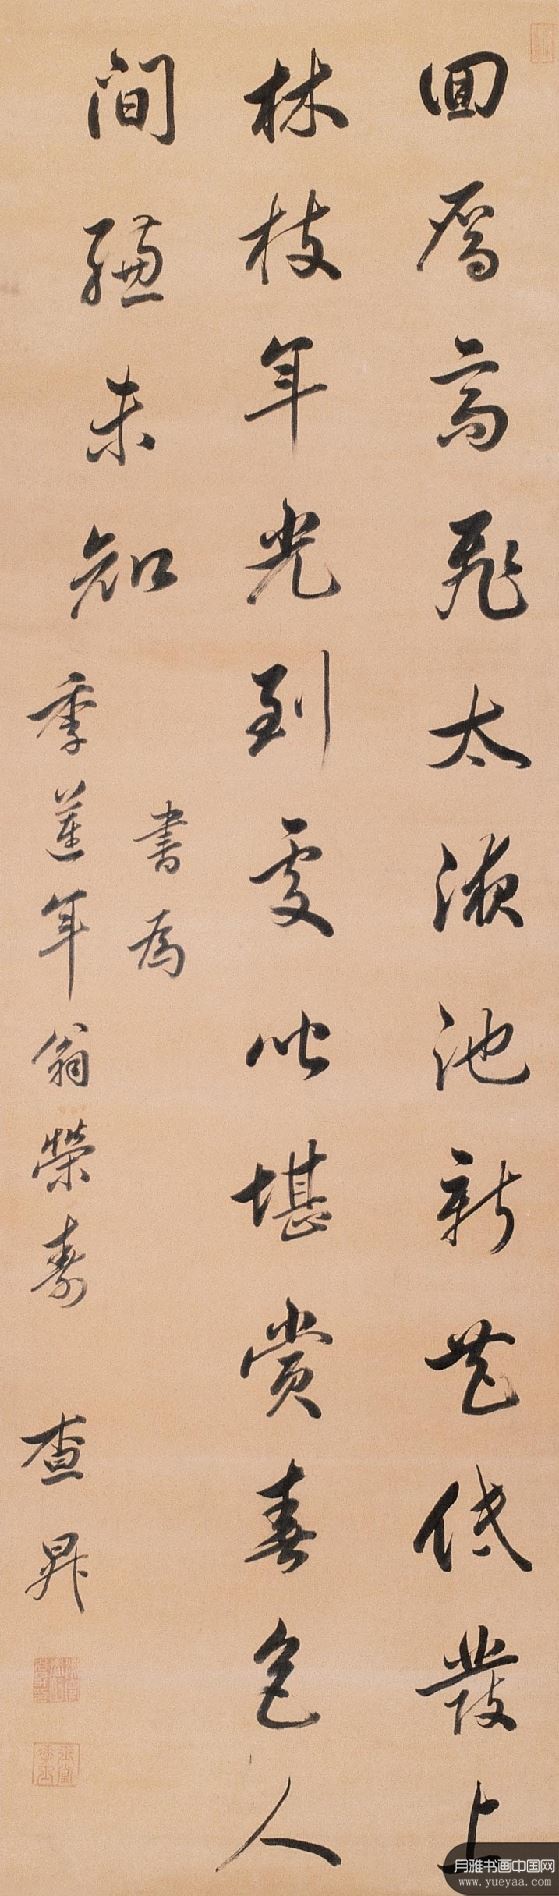 回鴈高飛太液池新花低發上
林枝年光到處皆堪賞春色人
間總未知
書為
季蓮年翁榮壽 查昇
月雅书画中国网
www.yueyaa.com